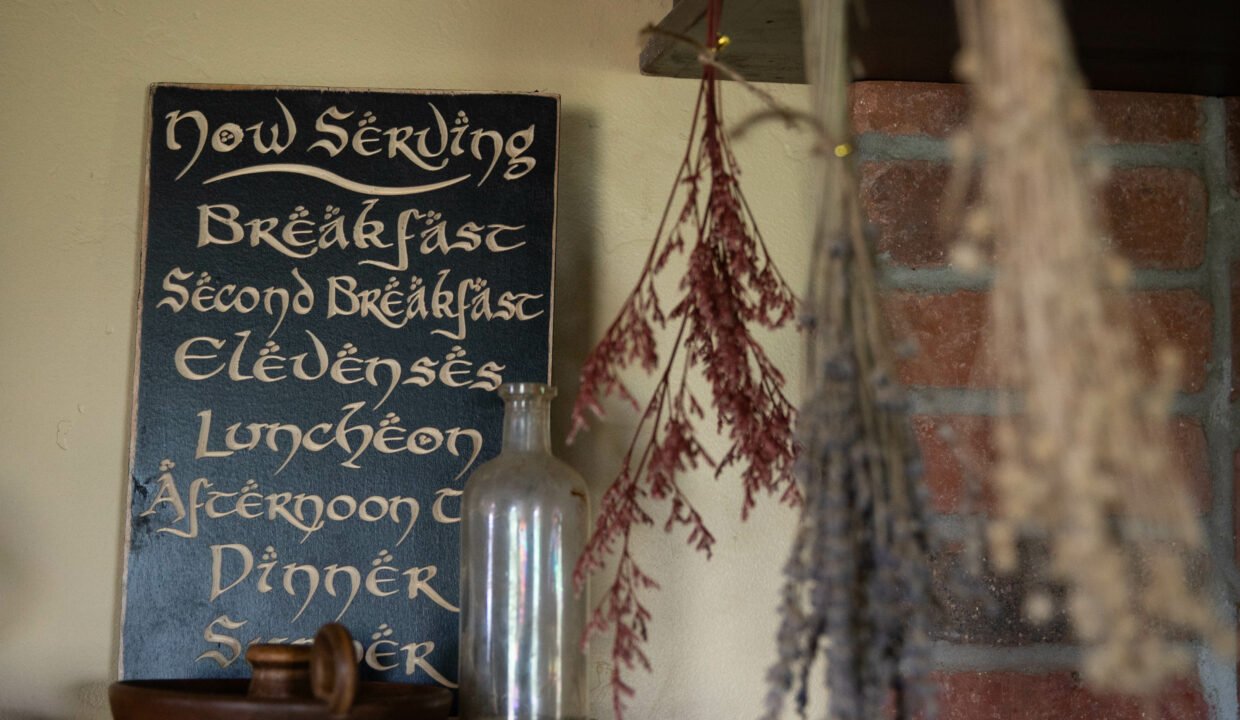 Now Serving
Breakfast
Second Breakfast
Elevenses
Luncheon
Afternoon
Dinner